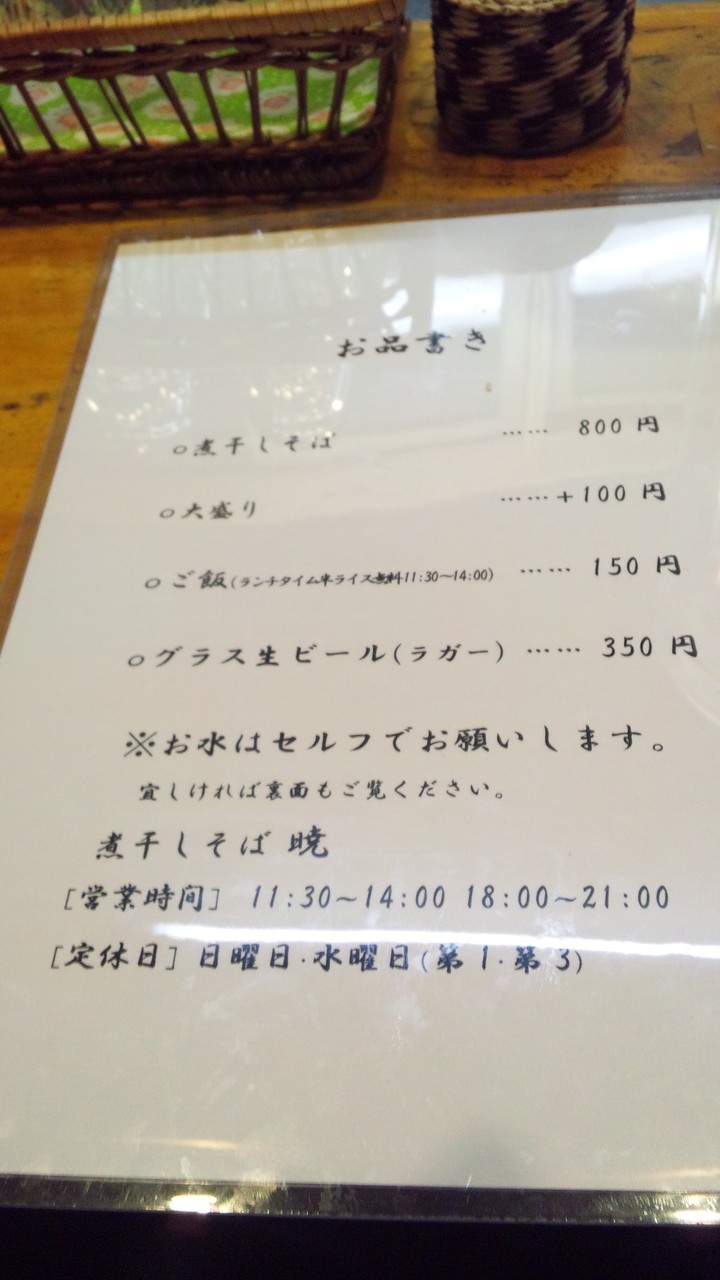 お品書き
○煮干しそば …… 800 円
○大盛り ……+100 円
○ご飯(ランチタイム半ライス無料11:30~14:00) …… 150 円
○グラス生ビール(ラガー) …… 350 円
※お水はセルフでお願いします。
宜しければ裏面もご覧ください。
煮干しそば 暁
[営業時間] 11:30~14:00 18:00~21:00
[定休日] 日曜日·水曜日(第1·第3)